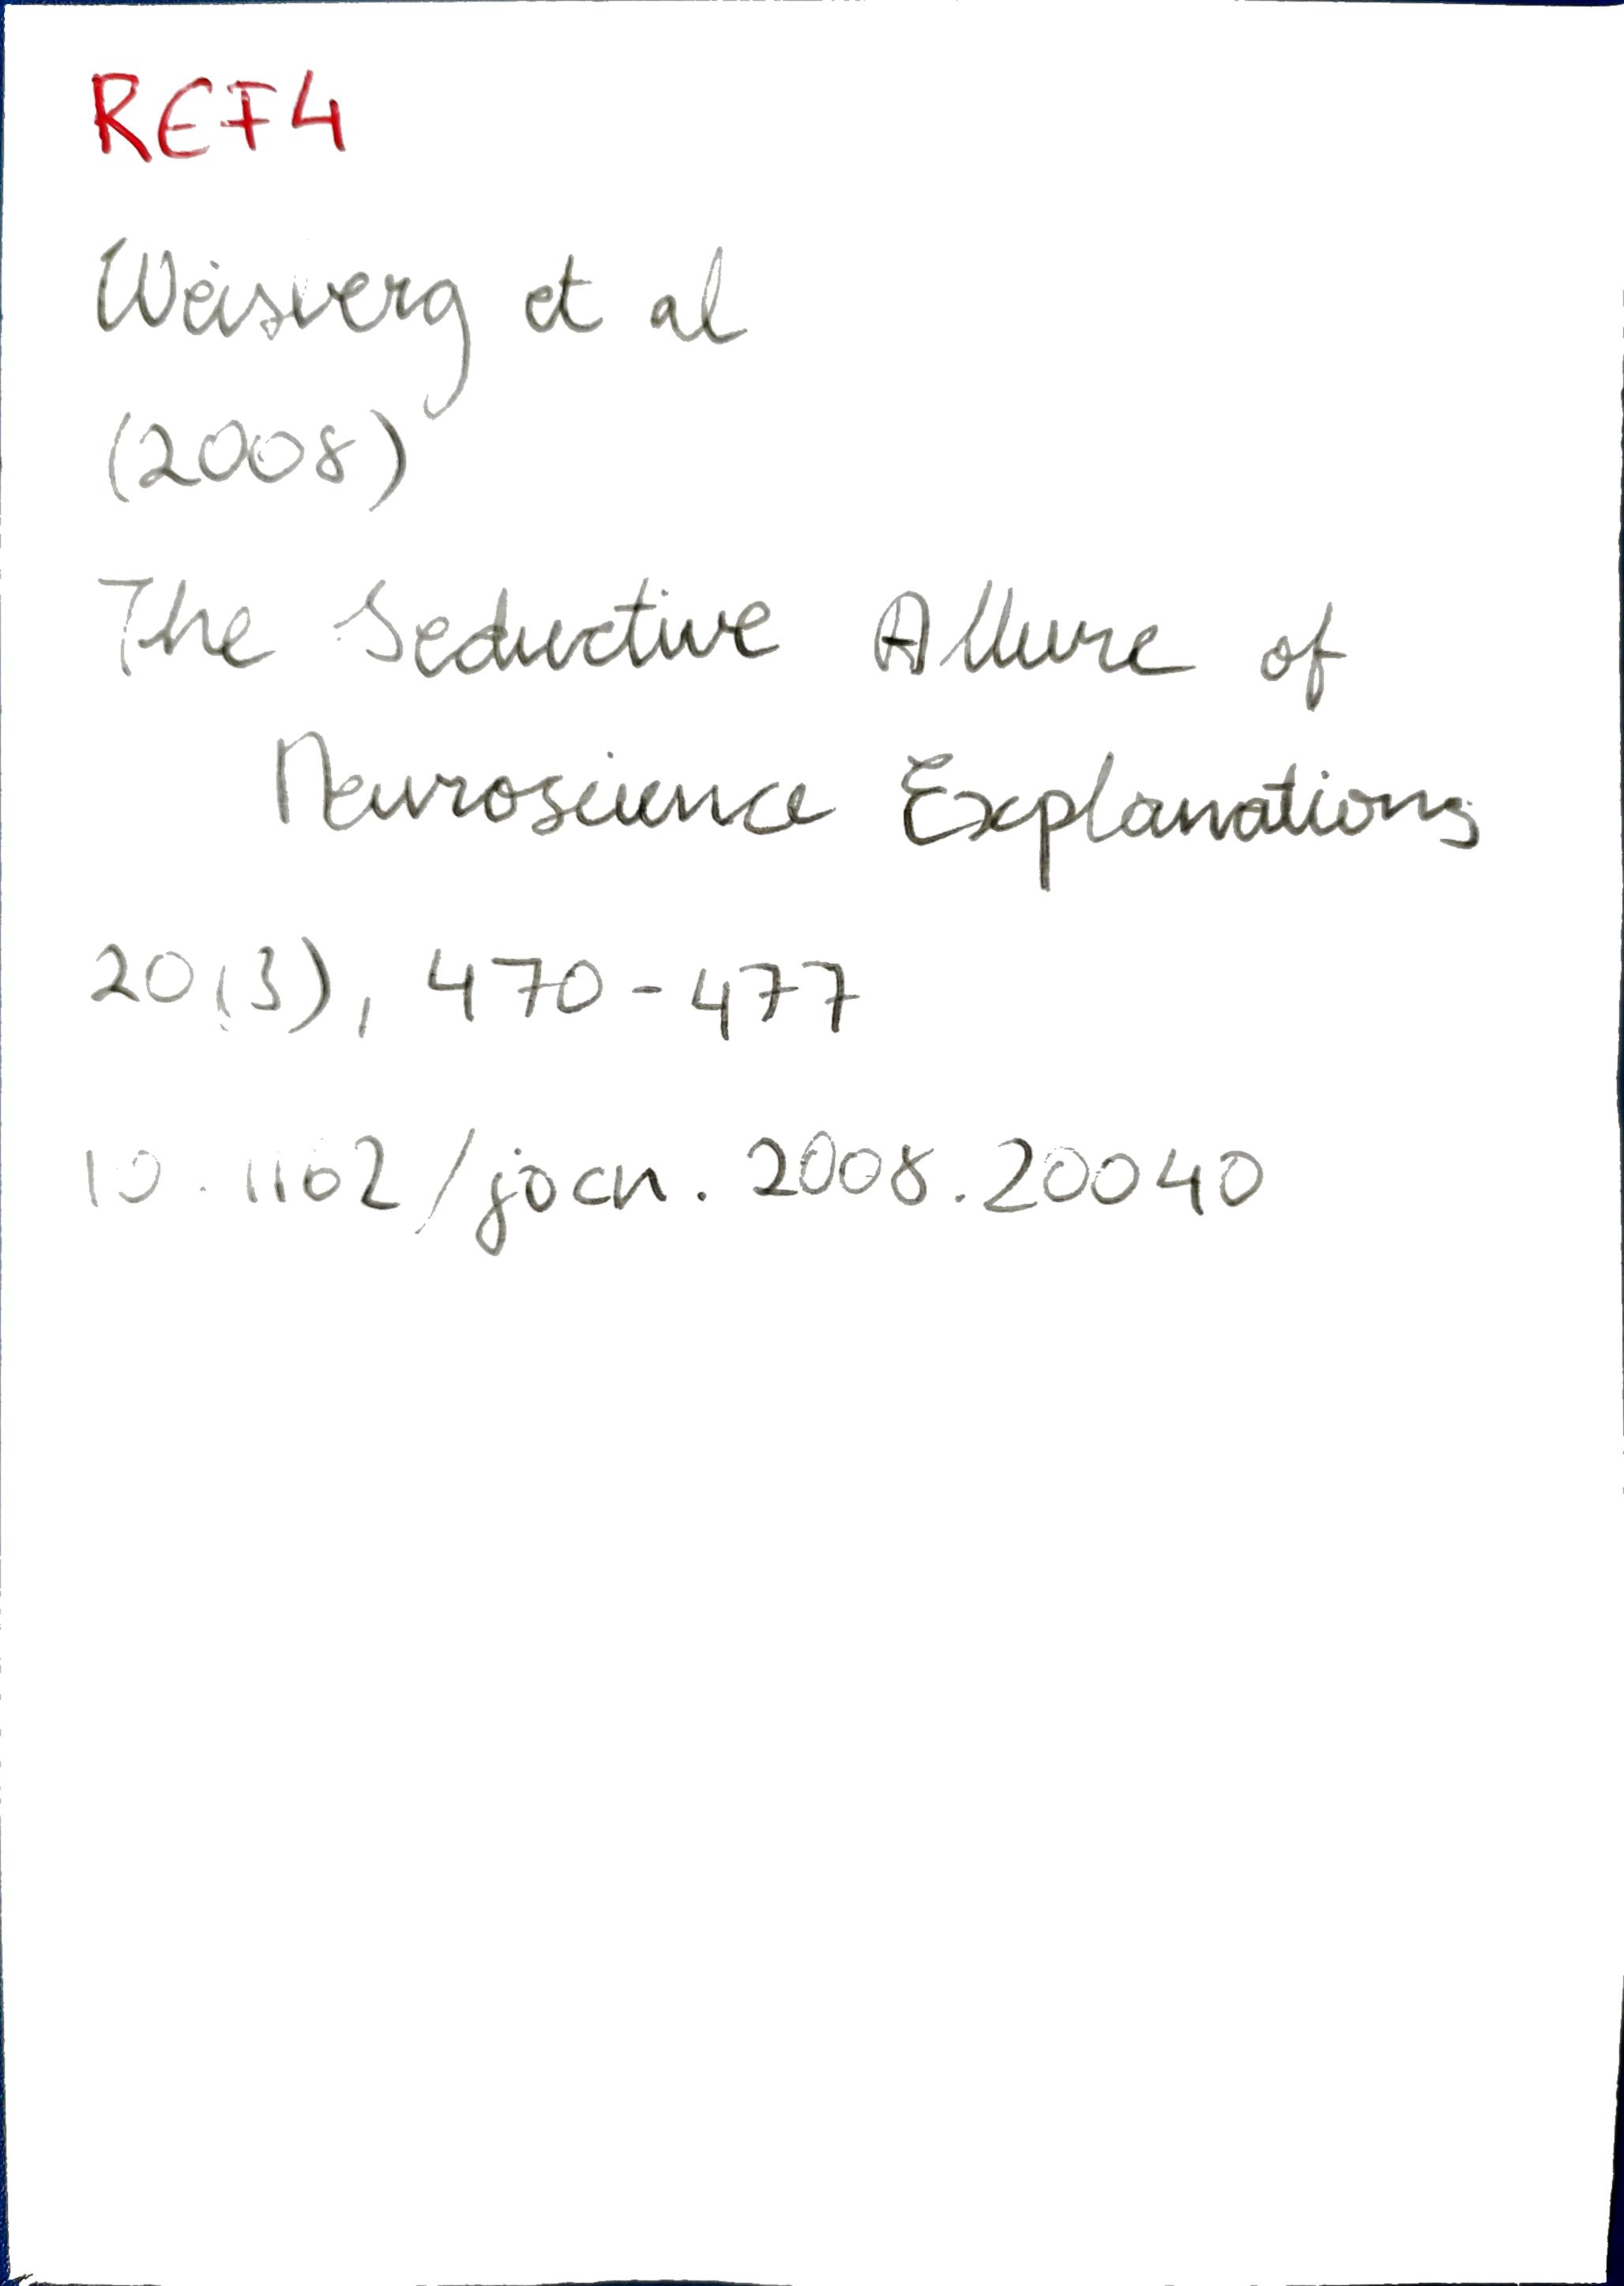 REF4
Weisverg et al
(2008)
The Seductive Allure of
Neuroscience Explanations
20(3), 470-477
10.1162/jocn.2008.20040